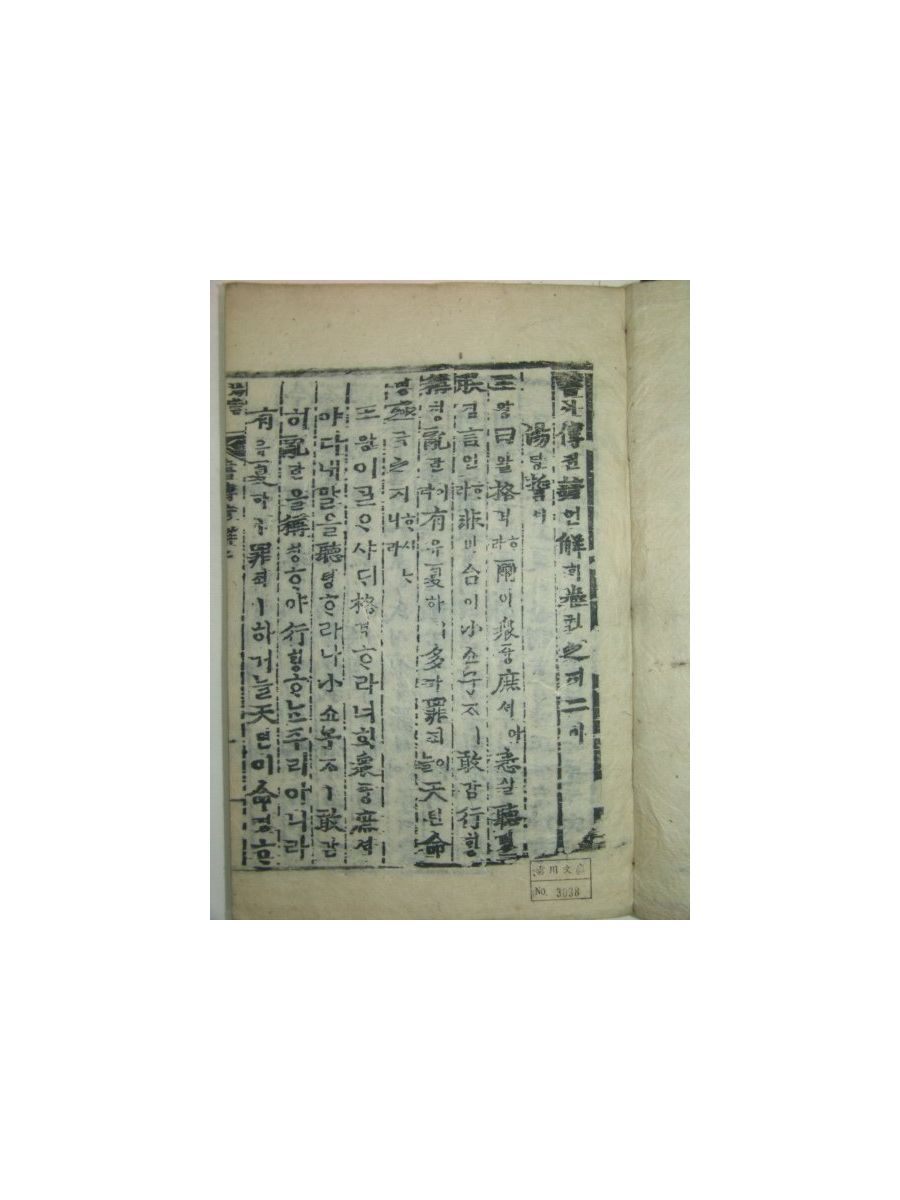 書셔傳젼諺언解ᄒᆡ卷권之지二이
湯탕誓셔
王왕曰왈格격ᄒᆞ라爾이衆즁庶셔아悉실聽텽
朕짐言언ᄒᆞ라非비台이小쇼子ᄌᆞㅣ敢감行ᄒᆡᆼ
稱칭亂란이라有유夏하ㅣ多다罪죄늘이天텬命
명殛극之지ᄒᆞ시ᄂᆞ니라
王왕이ᄀᆞᆯᄋᆞ샤ᄃᆡ格격ᄒᆞ라너희衆즁庶셔
야다내말을聽텽ᄒᆞ라나小쇼子ᄌᆞㅣ敢감
히亂란을稱칭ᄒᆞ야行ᄒᆡᆼᄒᆞᄂᆞᆫ주리아니라
有유夏하ㅣ罪죄ㅣ하거늘天텬이命명ᄒᆞ
湯誓
書傳諺解二
川文
No. 3038